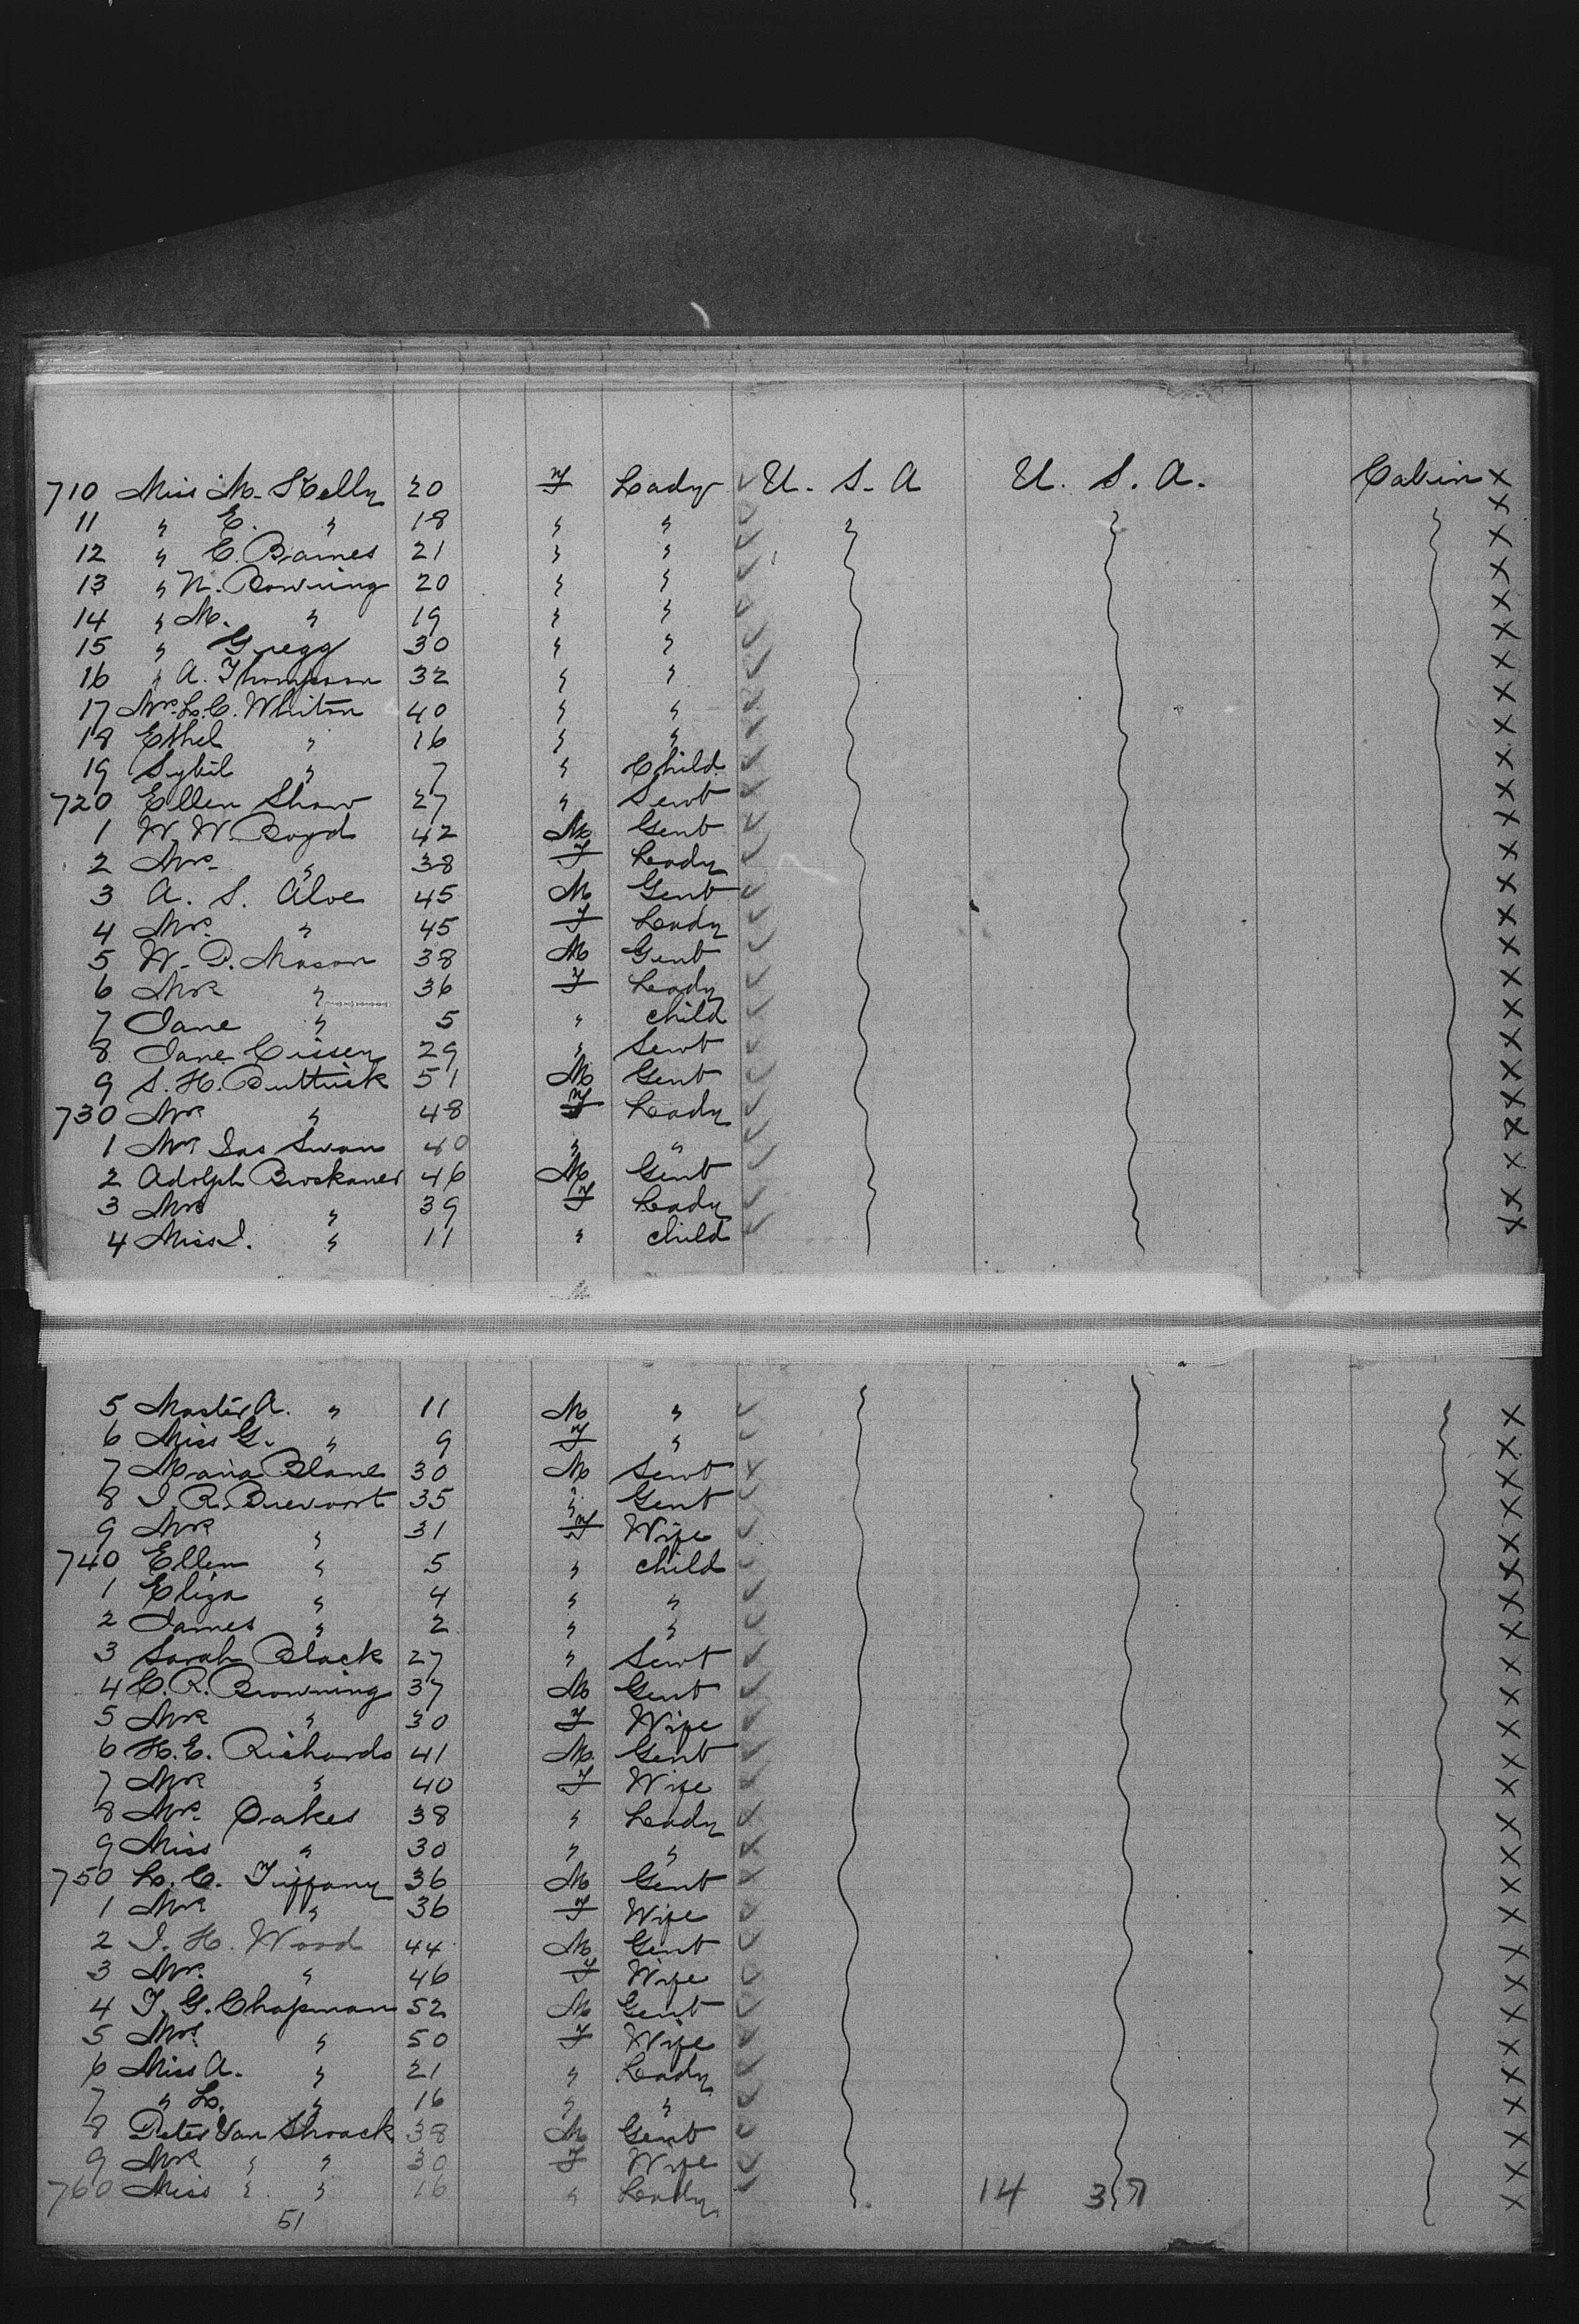 710 Miss M. Kelly 20 F Lady ✓ U. S. A U. S. A. Cabin X
11 " E. " 18 " " ✓ X
12 " E. Barnes 21 " " ✓ X
13 " N. Bowring 20 " " ✓ X
14 " M. " 19 " " ✓ X
15 " Gregg 30 " " ✓ X
16 " A. Thompson 32 " " ✓ X
17 Mrs. L. C. Whiton 40 " " ✓ X
18 Ethel " 16 " " ✓ X
19 Sybil " 7 " Child ✓ X
720 Ellen Shaw 27 " Servt ✓ X
1 W. W. Boyd 42 M Gent ✓ X
2 Mrs. " 38 F Lady ✓ X
3 A. S. Aloe 45 M Gent ✓ X
4 Mrs. " 45 F Lady ✓ X
5 W. P. Mason 38 M Gent ✓ X
6 Mrs " 36 F Lady ✓ X
7 Jane " 5 " child ✓ X
8 Jane 29 " Servt ✓ X
9 S. H. Buttrick 51 M Gent ✓ X
730 Mrs " 48 F Lady ✓ X
1 Mrs Jas Swan 40 " " ✓ X
2 Adolph 46 M Gent ✓ X
3 Mrs " 39 F Lady ✓ X
4 Miss I. " 11 " child ✓ X
5 Master A. " 11 M " ✓ X
6 Miss G. " 9 F " ✓ X
7 Maria Blane 30 M Servt ✓ X
8 J. R. Brevoort 35 " Gent ✓ X
9 Mrs " 31 F Wife ✓ X
740 Ellen " 5 " child ✓ X
1 Eliza " 4 " " ✓ X
2 James " 2 " " ✓ X
3 Sarah Black 27 " Servt ✓ X
4 C. R. Browning 37 M Gent ✓ X
5 Mrs " 30 F Wife ✓ X
6 H. E. Richards 41 M Gent ✓ X
7 Mrs " 40 F Wife ✓ X
8 Mrs. Oakes 38 " Lady ✓ X
9 Miss " 30 " " ✓ X
750 L. C. Tiffany 36 M Gent ✓ X
1 Mrs " 36 F Wife ✓ X
2 J. H. Wood 44 M Gent ✓ X
3 Mrs. " 46 F Wife ✓ X
4 T. G. Chapman 52 M Gent ✓ X
5 Mrs. " 50 F Wife ✓ X
6 Miss A. " 21 " Lady ✓ X
7 " L. " 16 " " ✓ X
8 Peter Van Shaack 38 M Gent ✓ X
9 Mrs " " 30 F Wife ✓ X
760 Miss " " 16 " Lady ✓ 14 37 X
51